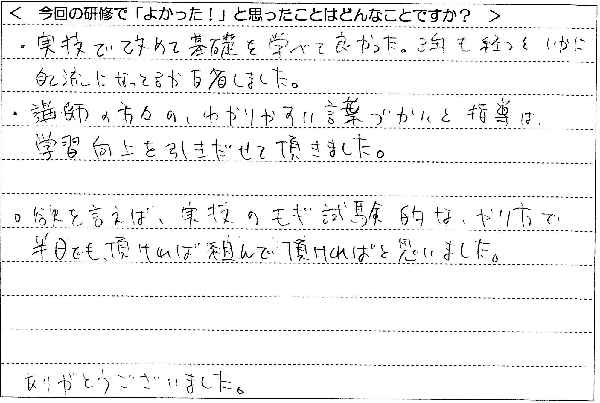 < 今回の研修で「よかった！」と思ったことはどんなことですか？ >
・実技で改めて基礎を学べて良かった。3年も経つといかに
自己流になってるか反省しました。
・講師の方々の、わかりやすい言葉づかいと指導は、
学習向上を引きだせて頂きました。
○欲を言えば、実技のもぎ試験的な、やり方で
半日でも、頂ければ組んで頂ければと思いました。
ありがとうございました。